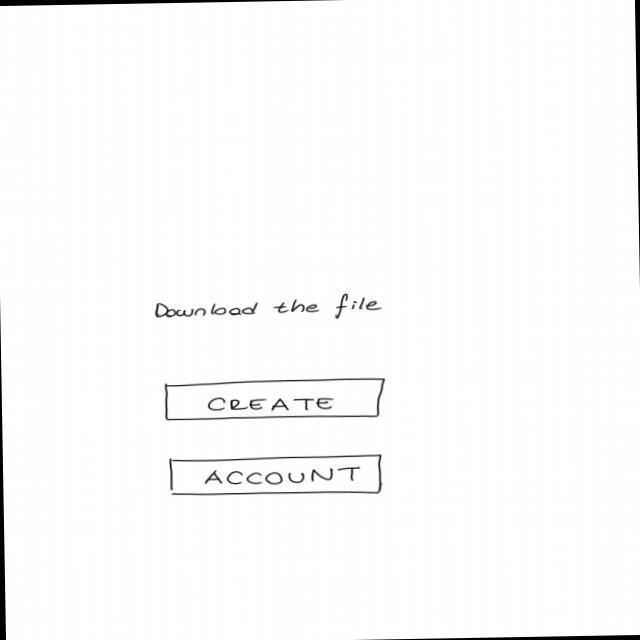 Download the file
CREATE
ACCOUNT